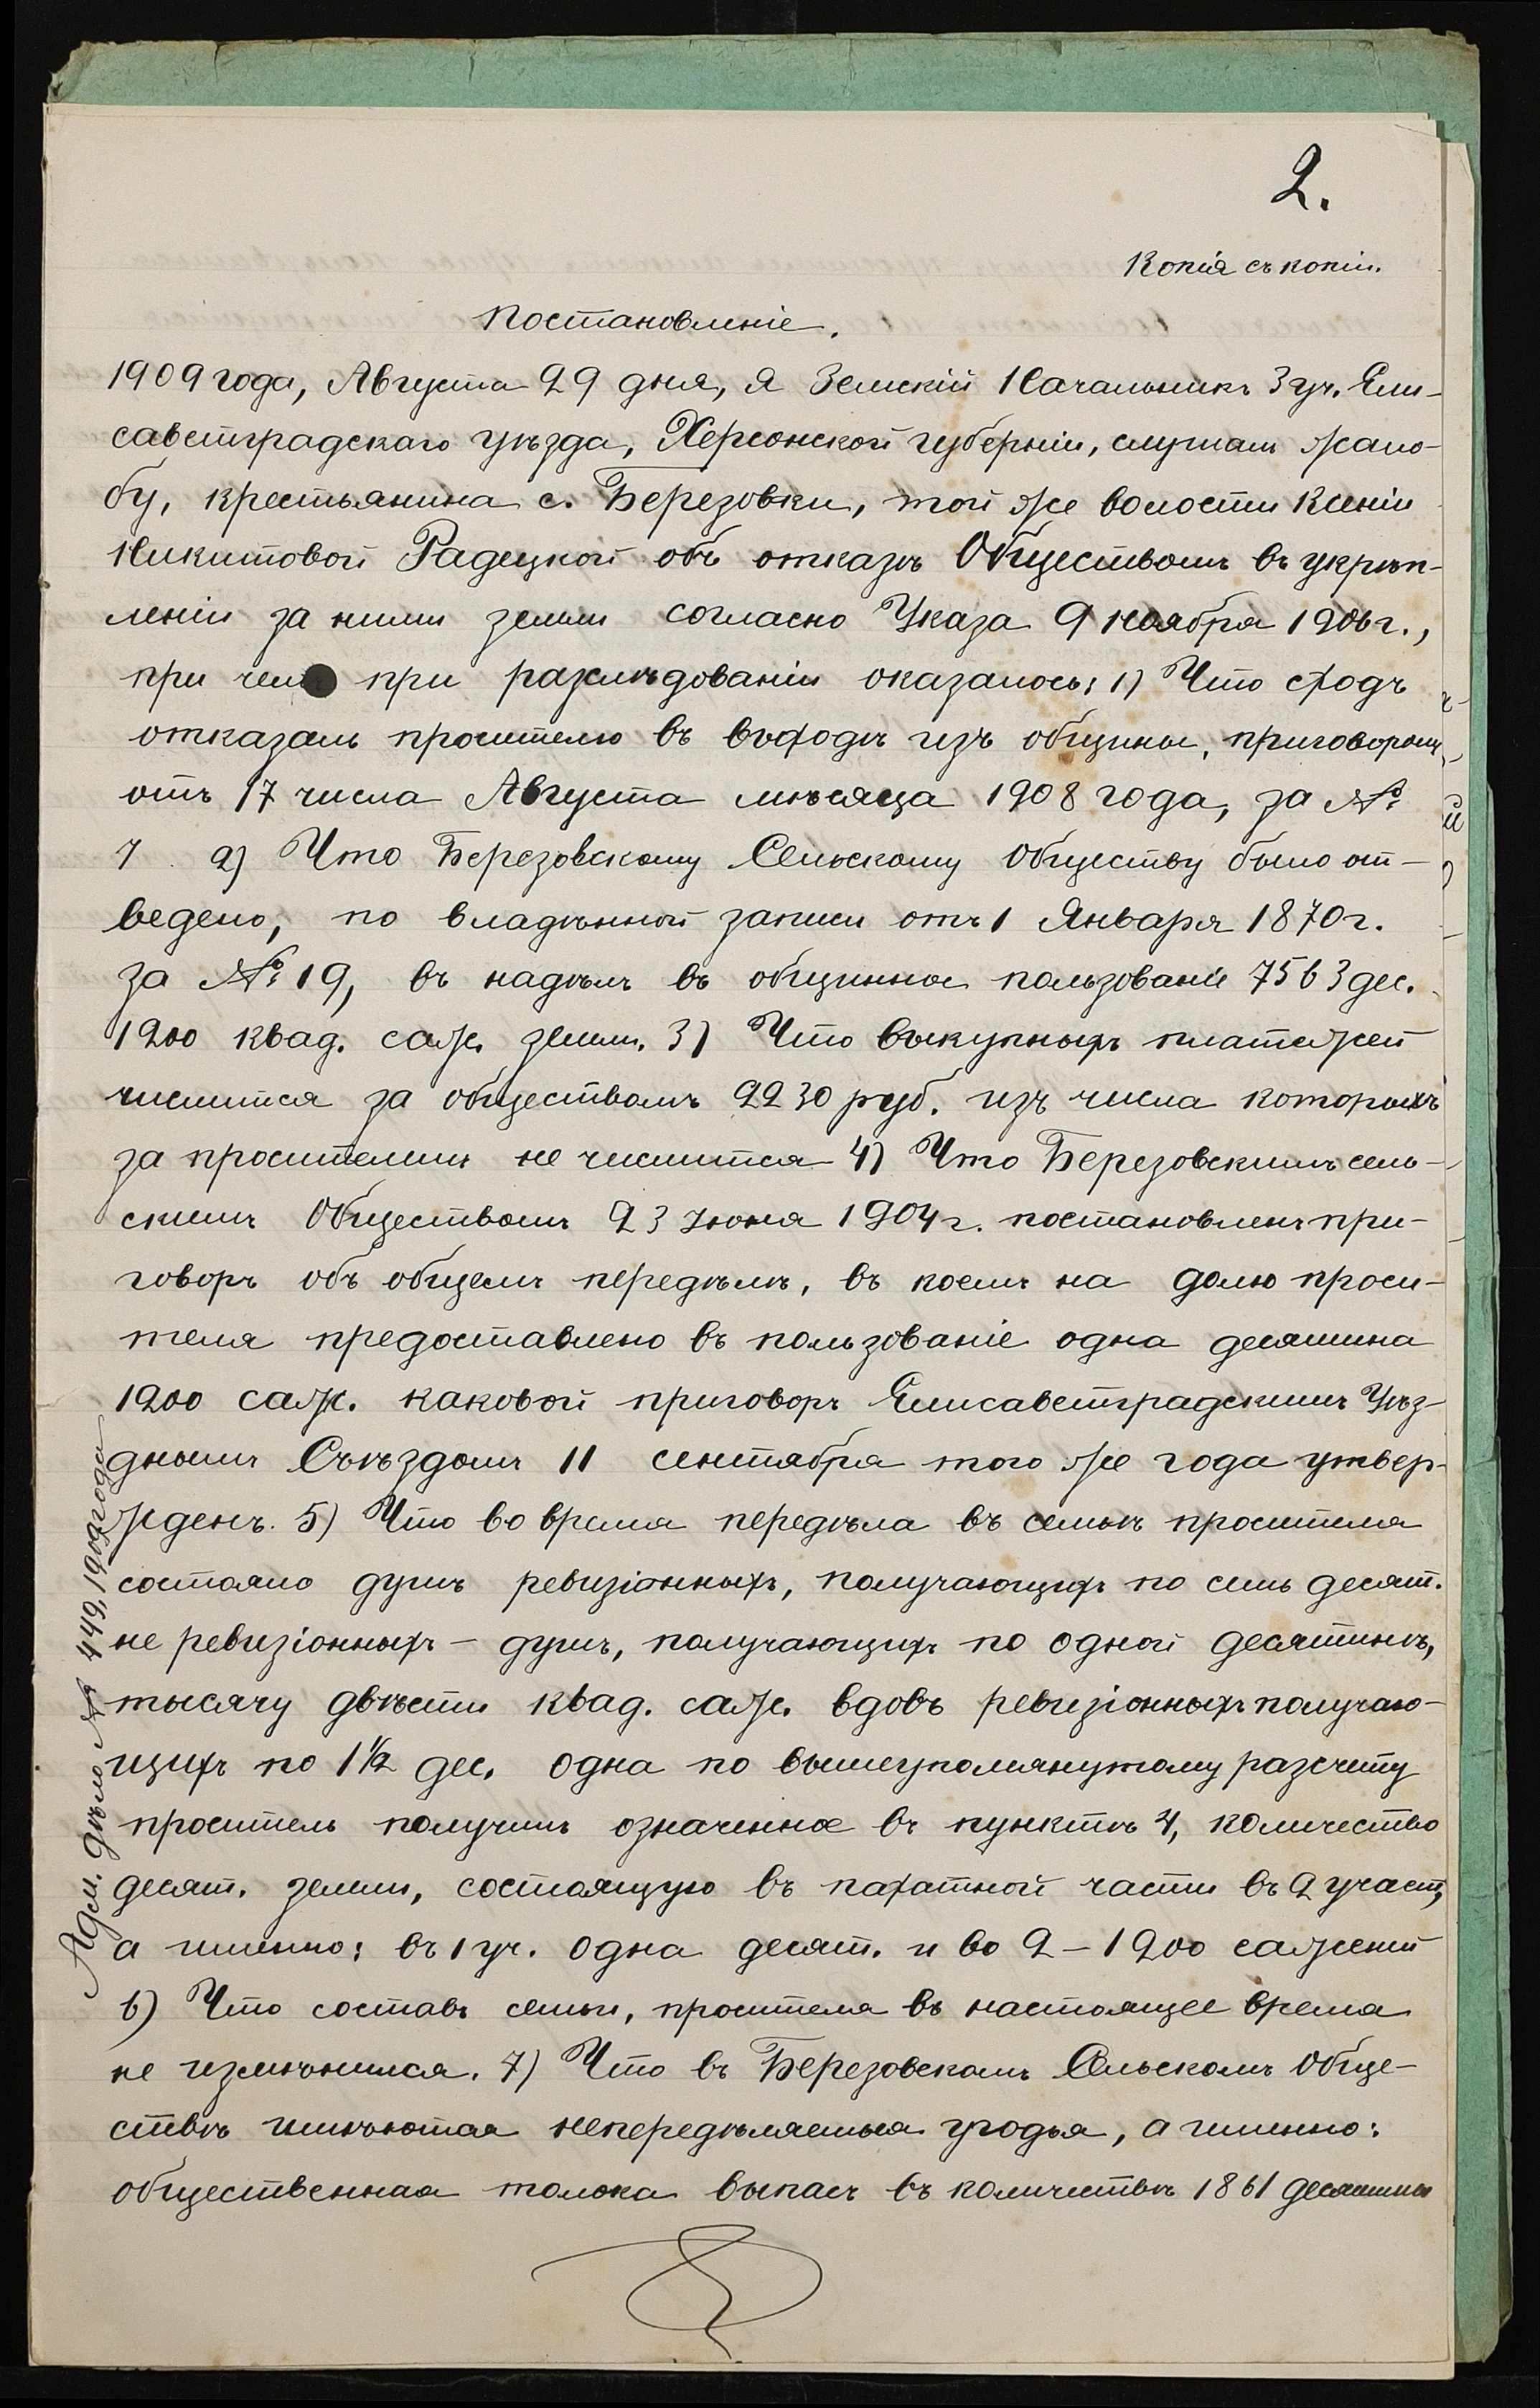 2.
Копія съ копіи.
Постановленіе.
1909 года, Августа 29 дня, я Земскій Начальникъ 3 уч. Ели-
саветградскаго уѣзда, Херсонской губерніи, слушалъ жало-
бу, крестьянина с. Березовки, той же волости Ксеніи
Никитовой Радецкой объ отказѣ Обществомъ въ укрѣп-
леніи за ними земли согласно Указа 9 ноября 1906 г.,
при чем при разслѣдованіи оказалось: 1) Что сходъ
отказалъ просителю въ выходѣ изъ общины, приговоромъ
отъ 17 числа Августа мѣсяца 1908 года, за №
7 2) Что Березовскому Сельскому Обществу было от-
ведено, по владѣнной записи отъ 1 Января 1870 г.
за № 19, въ надѣлъ въ общинное пользованіе 7563 дес.
1200 квад. саж. земли. 3) Что выкупныхъ платежей
числится за обществомъ 2230 руб. изъ числа которыхъ
за просителемъ не числится 4) Что Березовскимъ сель-
скимъ Обществомъ 23 Іюня 1904 г. постановленъ при-
говоръ объ общемъ передѣлѣ, въ коемъ на долю проси-
теля предоставлено въ пользованіе одна десятина
1200 саж. каковой приговоръ Елисаветградскимъ Уѣз-
днымъ Съѣздомъ 11 сентября того же года утвер-
жденъ. 5) Что во время передѣла въ семьѣ просителя
состояло душъ ревизіонныхъ, получающихъ по семь десят.
не ревизіонныхъ – душъ, получающихъ по одной десятинѣ,
тысячу двѣсти квад. саж. вдовъ ревизіонныхъ получаю-
щихъ по 1½ дес. одна по вышеупомянутому разсчету
проситель получилъ означенное въ пунктѣ 4, количество
десят. земли, состоящую въ пахатной части въ 2 участ,
а именно: въ 1 уч. одна десят. и во 2 – 1200 саженей
6) Что составъ семьи, просителя въ настоящее время
не измѣнился. 7) Что въ Березовскомъ Сельскомъ Обще-
ствѣ имѣются непередѣляемыя угодья, а именно:
общественная толока выпасъ въ количествѣ 1861 десятины
Адм. дѣло № 449, 1909 года